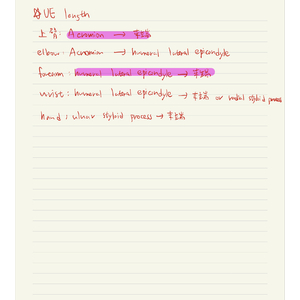 UE length
上臂: Acromion → 末端
elbow: Acromion → humeral lateral epicondyle
forearm: humeral lateral epicondyle → 末端
wrist: humeral lateral epicondyle → 末端 or radial styloid process
hand: ulnar styloid process → 末端